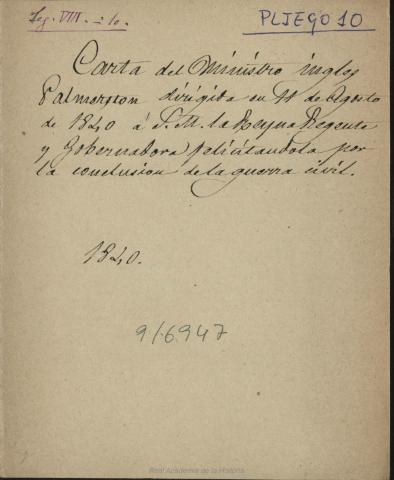 Leg. VIII - 10.
PLIEGO 10
Carta del Ministro ingles
Palmerston dirigida en 11 de Agosto
de 1840 á S. M. la Reyna Regente
y Gobernadora felicitandola por
la conclusion de la guerra civil.
1840.
9/6947
Real Academia de la Historia